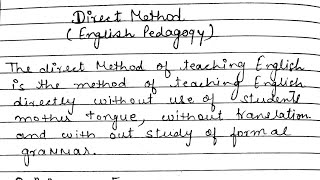 Direct Method
(English Pedagogy)
The direct Method of teaching English
is the method of teaching English
directly without use of student's
mother tongue, without translation
and with out study of formal
grammar.